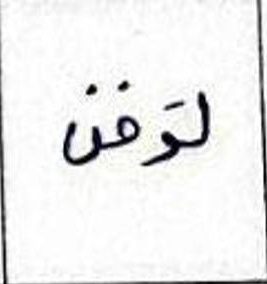 لوفن